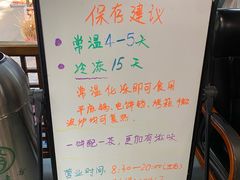 保存建议
常温4-5天
冷冻15天
常温化冻即可食用
平底锅、电饼铛、烤箱、微
波炉均可复热
一饼配一茶，更加有滋味
营业时间：8:30-20:00